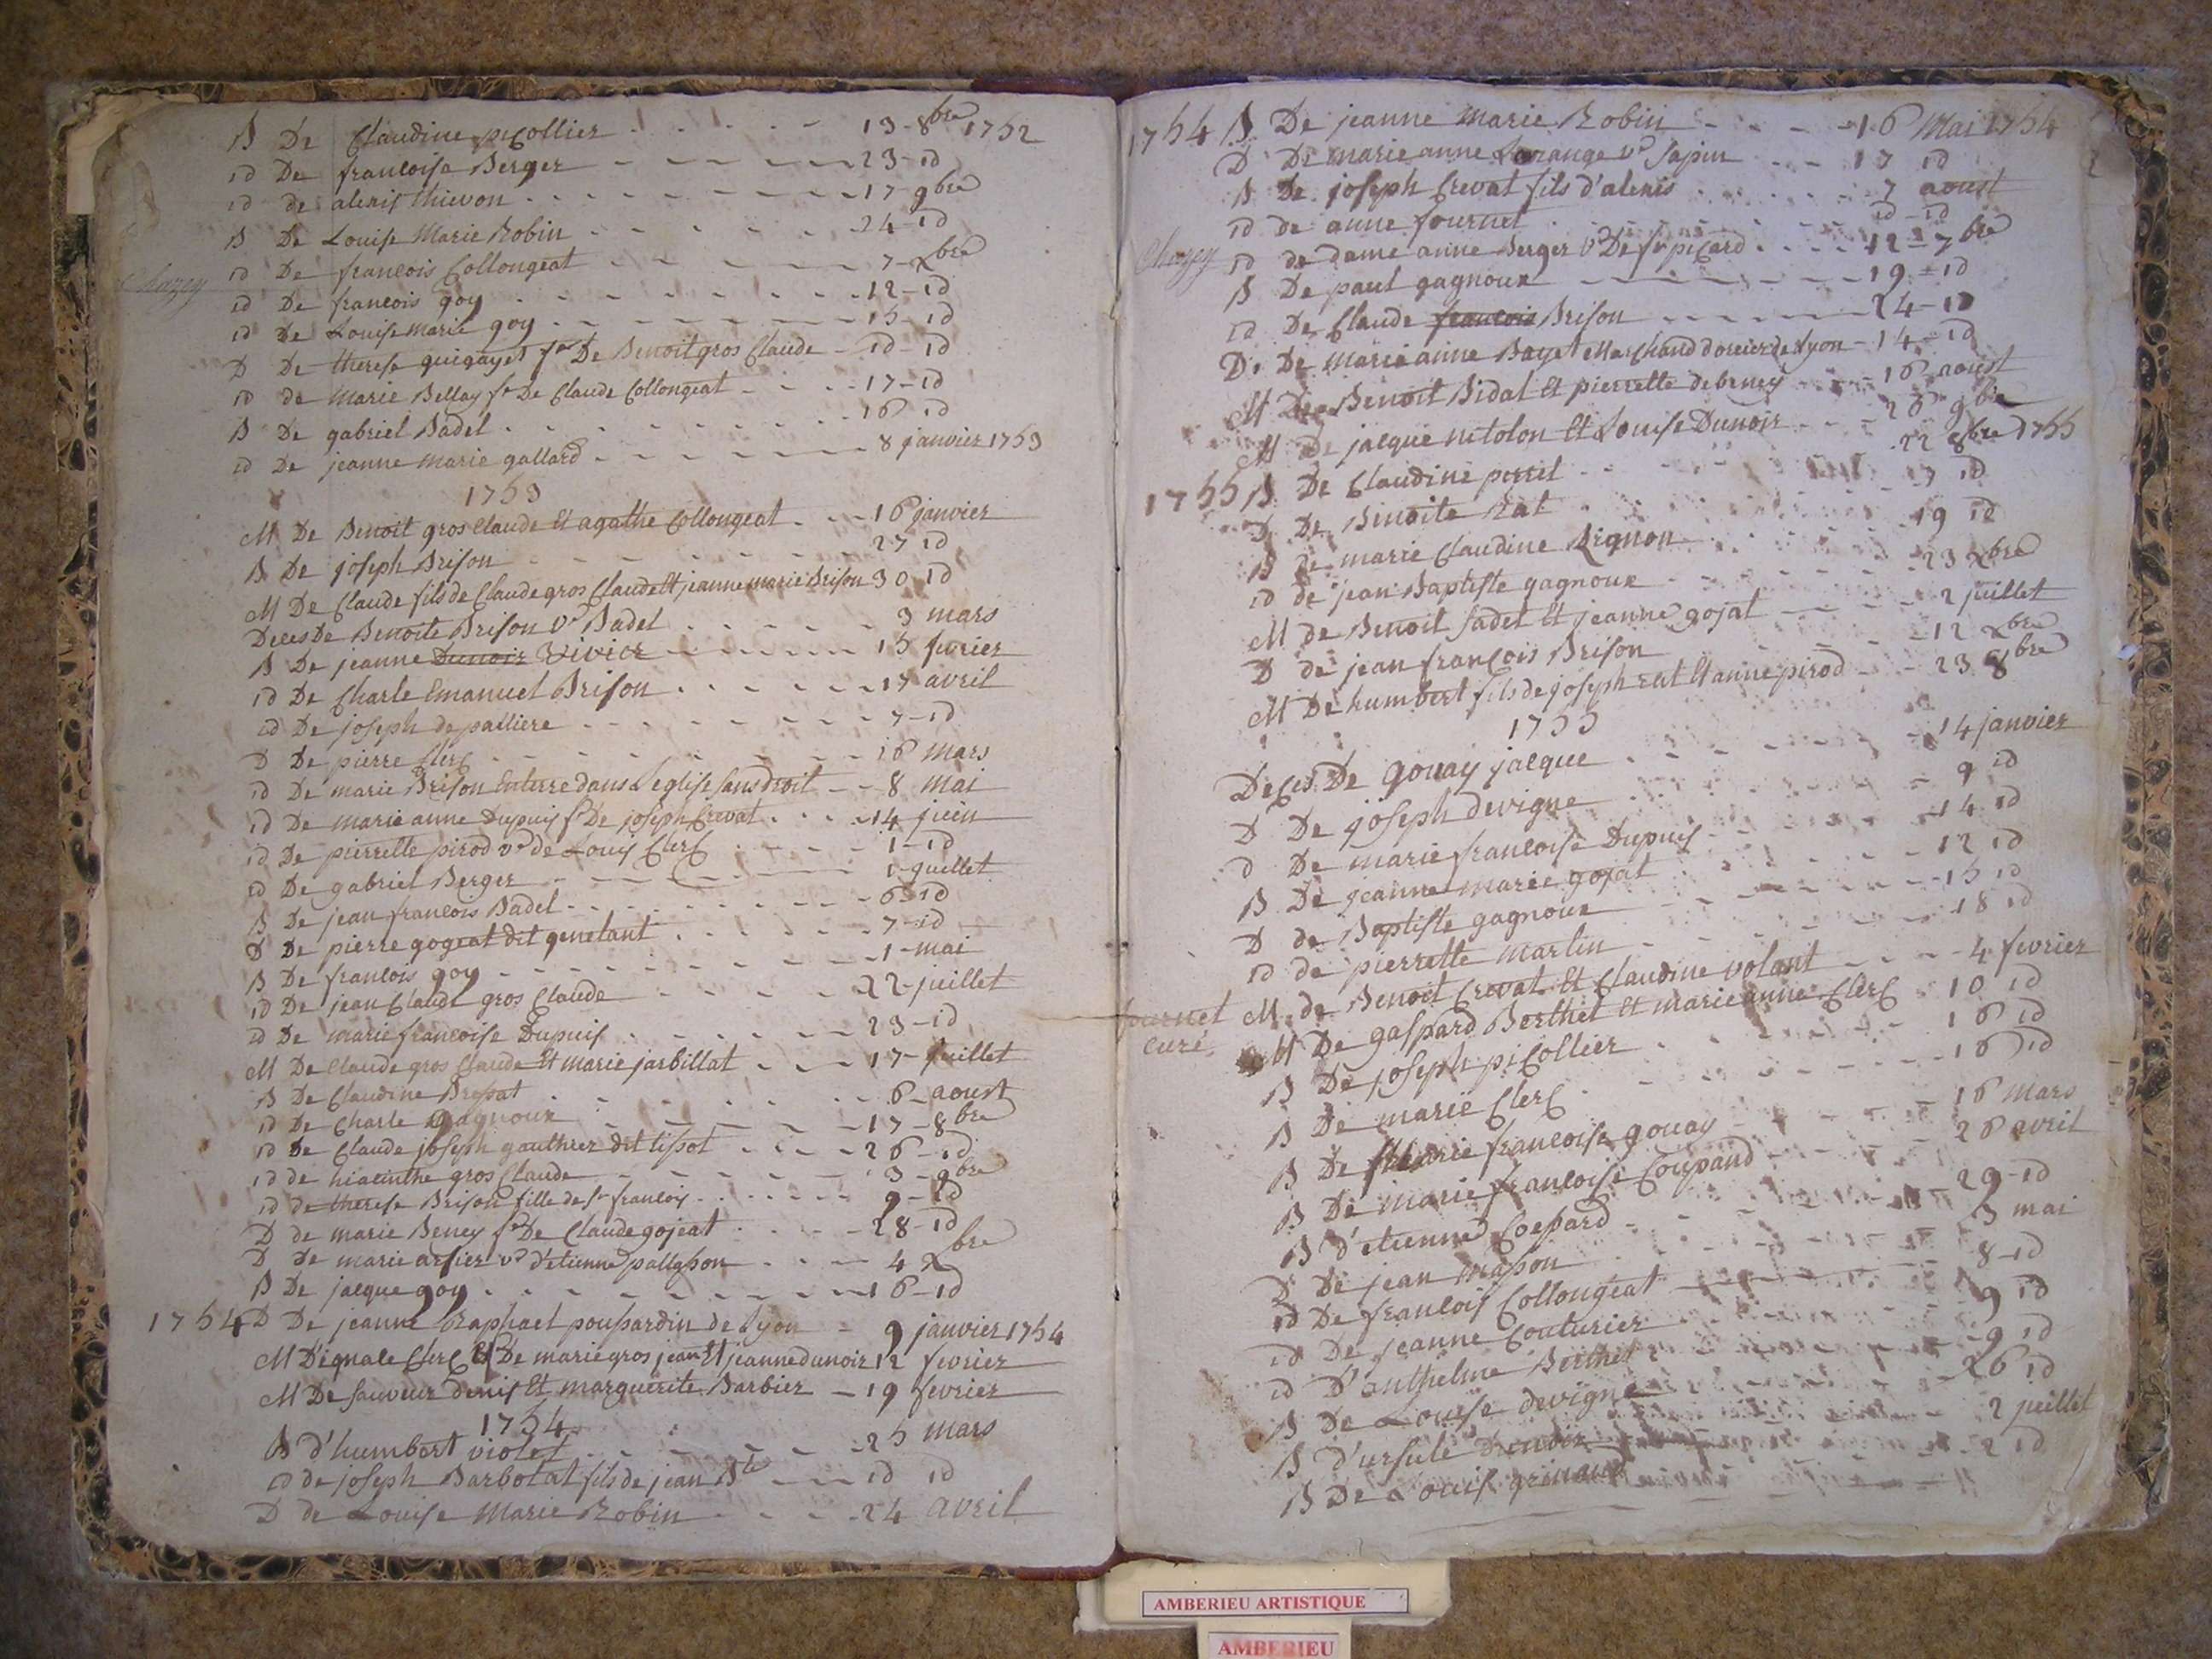 B De Claudine picollier - - - 13 - 8bre 1752
id De francoise Berger - - - 23 - id
id de alexis thievon - - - 17 - 9bre
B De Louise Marie Robin - - - 24 - id
Chazey id De francois Collongeat - - - 7 - xbre
id De francois goy - - - 12 - id
id De Louise marie goy - - - 15 - id
D De therese guigayet fe De Benoit gros Claude - id - id
id de Marie Bellay fe De Claude Collongeat - - - 17 - id
B De gabriel Badel - - - 16 id
id De jeanne Marie gallard - - - 8 janvier 1753
1753
M De Benoit gros Claude Et agathe Collongeat - - - 16 janvier
B De joseph Brison - - - 27 id
M De Claude fils de Claude gros Claude Et jeanne marie Brison 30 id
Deces De Benoite Brison ve Badel - - - 3 mars
B De jeanne Dunoir Vivier - - - 15 fevrier
id De Charle Emanuel Brison - - - 17 avril
id De joseph depalliere - - - 7 - id
D De pierre Clerc - - - 16 mars
id De marie Brison Enterre dans L'eglise sans droit - - 8 Mai
id De marie anne Dupuis fe De joseph Crevat - - - 14 juin
id De pierrette pirod ve de Louis Clerc - - - 1 - id
id De gabriel Berger - - - 1 - juillet
B De jean francois Badel - - - 6 id
D De pierre gogeat dit genetant - - - 7 - id
B De francois goy - - - 1 - mai
id De jean Claude gros Claude - - - 22 - juillet
id De marie francoise Dupuis - - - 23 - id
M De Claude gros Claude Et marie jarbillat - - - 17 - juillet
B De Claudine Brossat - - - 6 - aoust
id De Charle gagnoux - - - 17 - 8bre
id De Claude joseph gauthier dit tissot - - - 26 - id
id de hiacinthe gros Claude - - - 3 - 9bre
id de therese Brison fille de sr francois - - - 9 - id
D de marie Beney fe De Claude gojeat - - - 28 - id
D De marie arsier ve d'etienne pallasson - - - 4 xbre
B De jacque goy - - - 16 - id
1754 D De jeanne Raphael poussardin de Lyon - 9 janvier 1754
M D'ignale Clerc Et De marie gros jean Et jeanne dunoir 12 fevrier
M De sauveur denis Et marguerite Barbier - 19 fevrier
1754
B d'humbert violet - - - 25 mars
id de joseph Barbolat fils de jean Bte - - - id id
D de Louise Marie Robin - - - 24 avril
1754 B De jeanne Marie Robin - - - 16 Mai 1754
D De marie anne Lorange ve Sapin - - - 17 id
B De joseph Crevat fils d'alexis - - - 7 aoust
id de anne fournet - - - id - id
Chazey id de dame anne Berger ve De sr picard - - - 12 - 7bre
B De paul gagnoux - - - 19 - id
id De Claude francois Brison - - - 24 - id
D. De marie anne Bayet Marchand doreier de Lyon - 14 - id
M De Benoit Bidal Et pierrette debeney - - - 16 aoust
M de jacque netolon Et Louise Dunoir - - - 26 9bre
1755 B De Claudine perret - - - 22 8bre 1755
D De Benoite Rat - - - 7 id
B De marie Claudine Bignon - - - 19 id
id de jean Baptiste gagnoux - - - 23 xbre
M de Benoit Sadet Et jeanne gojat - - - 2 juillet
D de jean francois Brison - - - 12 xbre
M De humbert fils de joseph rat Et anne pirod - - 23 8bre
1755
Deces De gouay jacque - - - 14 janvier
D De joseph devigne - - - 9 id
d De marie francoise Dupuis - - - 14 id
B De jeanne marie gojat - - - 12 id
D de Baptiste gagnoux - - - 15 id
id de pierrette Martin - - - 18 id
fournet M. de Benoit Crevat Et Claudine volant - - - 4 fevrier
curé. M De gaspard Berthet Et marie anne Clerc - 10 id
B De joseph picollier - - - 16 id
B De marie Clerc - - - 16 id
B De Marie francoise gouay - - - 16 mars
B De marie francoise Coupand - - - 26 avril
B d'etienne Coepard - - - 29 - id
D De jean Masson - - - 3 mai
id De francois Collongeat - - - 8 - id
id De jeanne Couturier - - - 9 id
id D'anthelme Berthet - - - 9 id
B De Louise devigne - - - 26 id
B d'ursule - - - 2 juillet
B De Louis - - - 2 id
AMBERIEU ARTISTIQUE
AMBERIEU